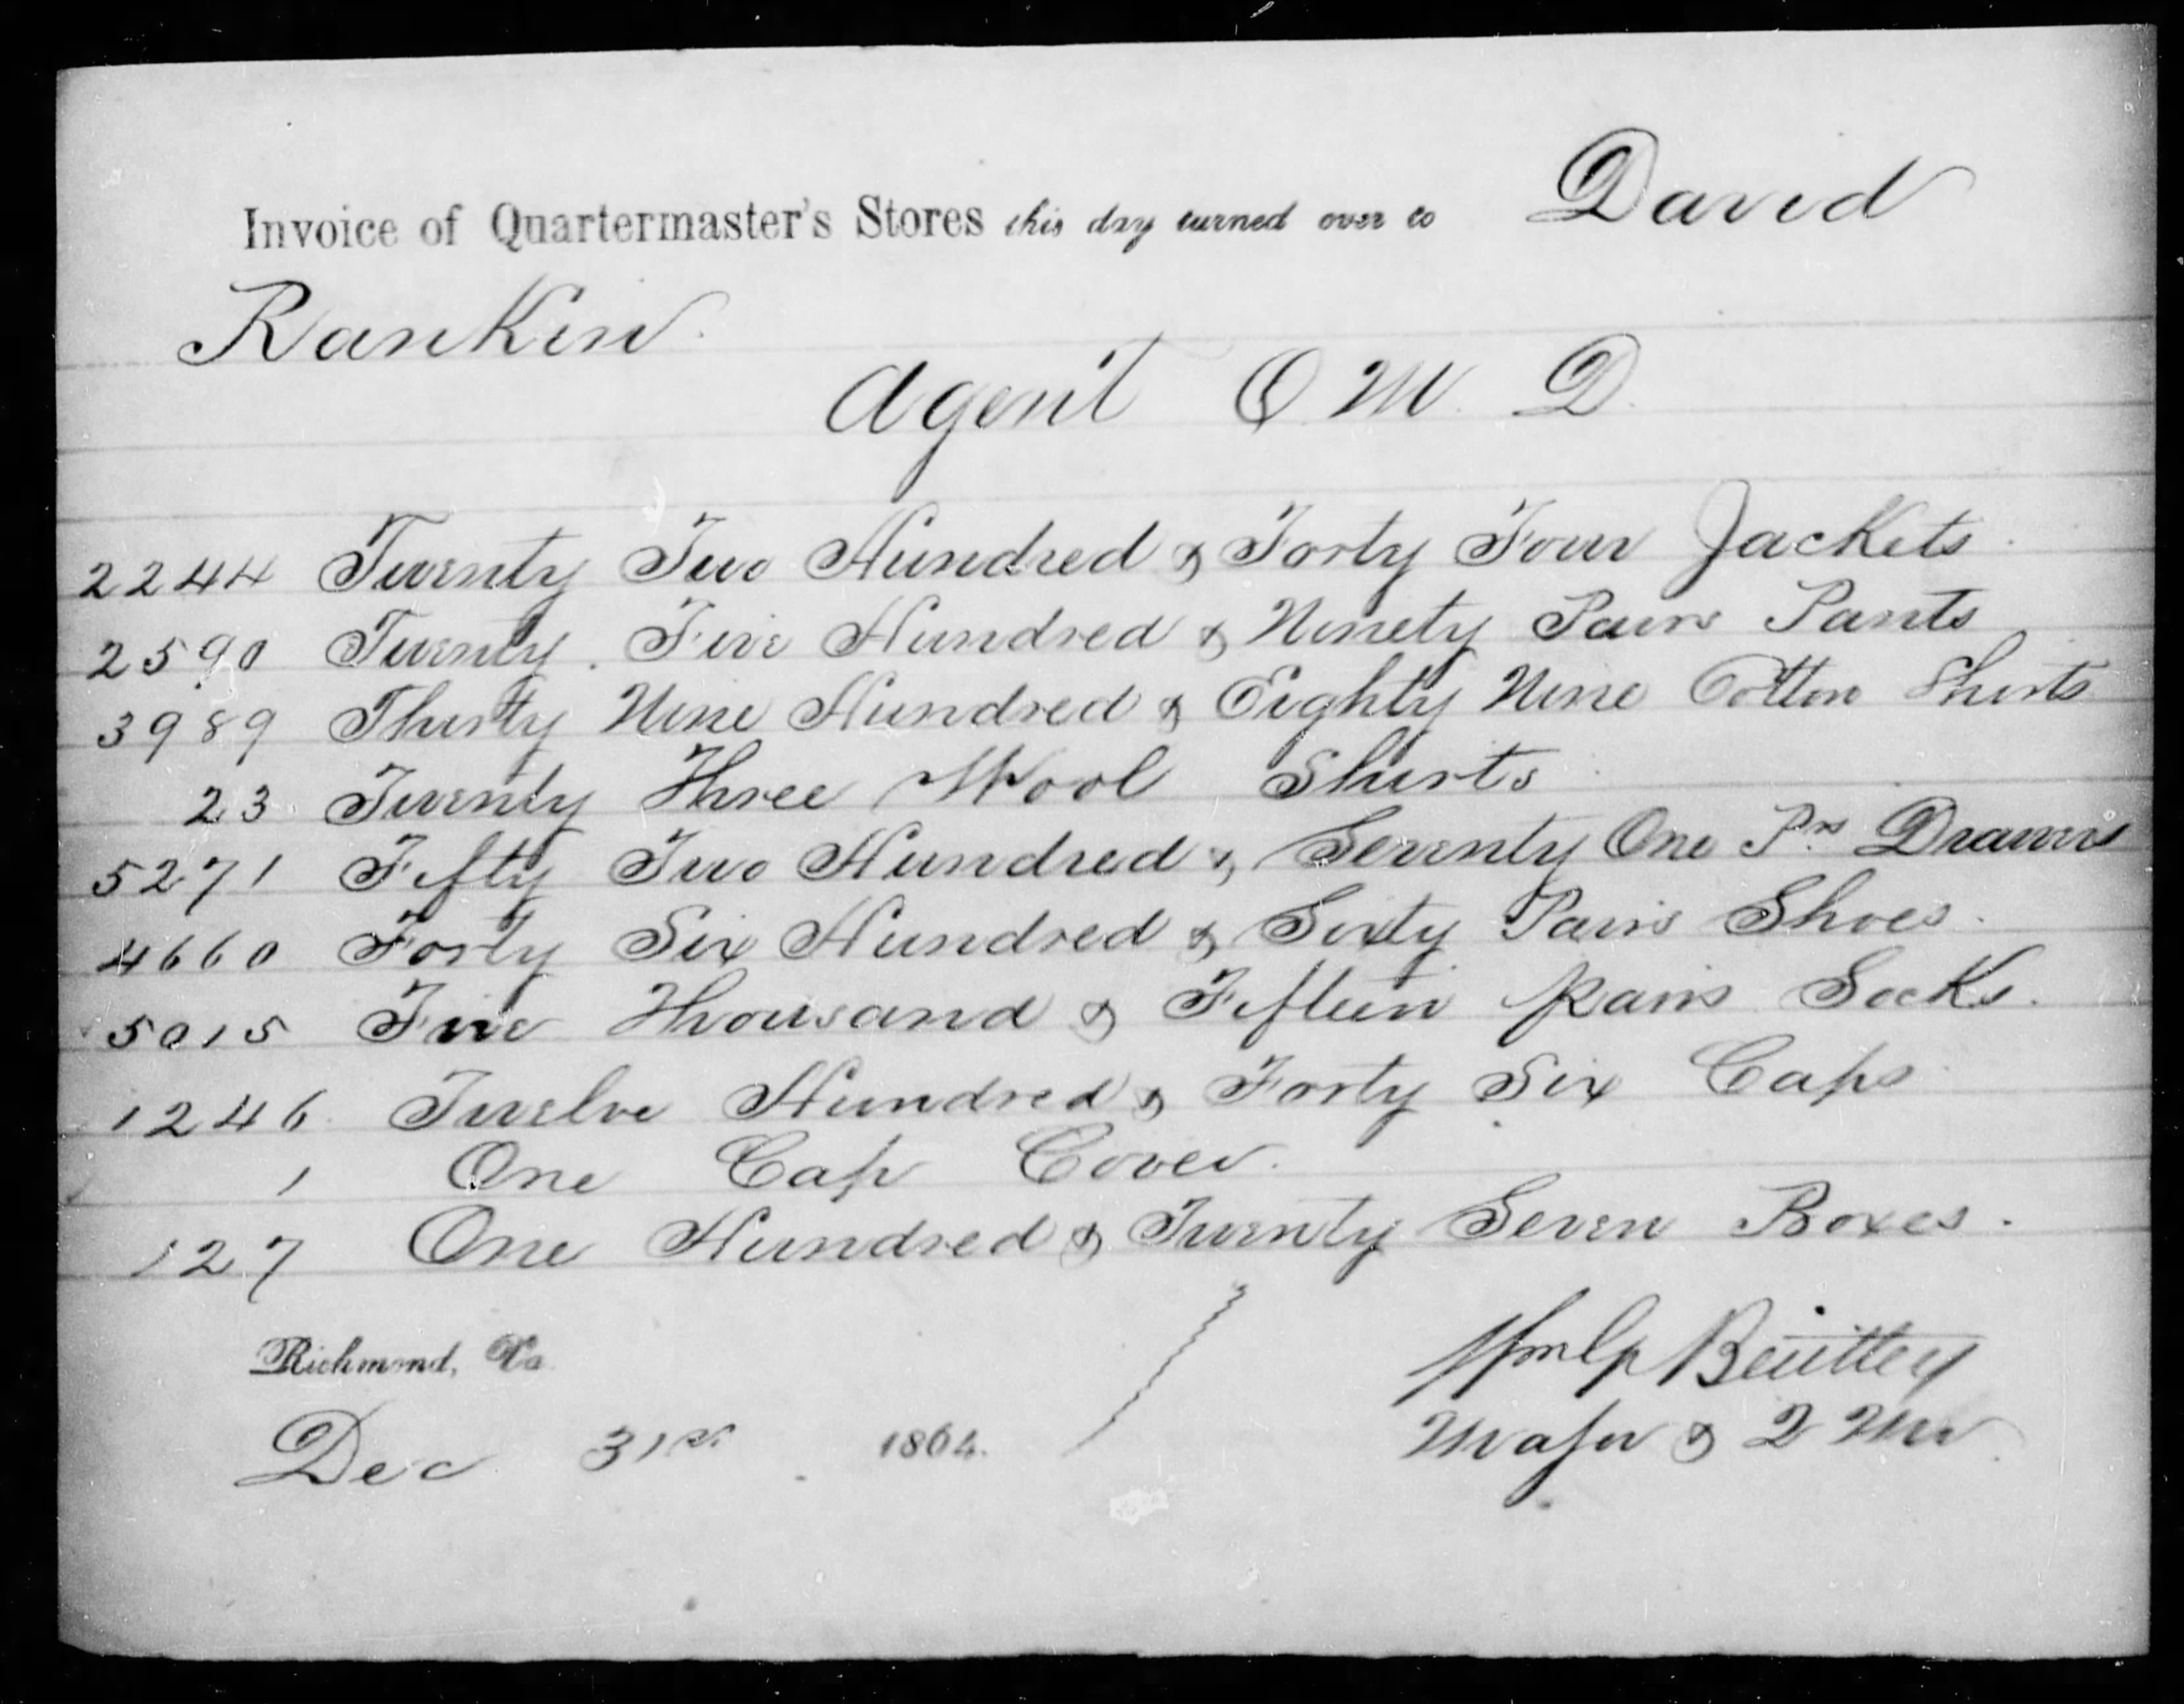 Invoice of Quartermaster's Stores this day turned over to David
Rankin.
Agent Q. M. D.
2244 Twenty Two Hundred & Forty Four Jackets.
2590 Twenty Five Hundred & Ninety Pairs Pants
3989 Thirty Nine Hundred & Eighty Nine Cotton Shirts
23 Twenty Three Wool Shirts.
5271 Fifty Two Hundred & Seventy One Prs Drawers
4660 Forty Six Hundred & Sixty Pairs Shoes.
5015 Five Thousand & Fifteen pairs Socks.
1246 Twelve Hundred & Forty Six Caps
1 One Cap Cover.
127 One Hundred & Twenty Seven Boxes.
Richmond, Va
Dec 31st 1864.
Major & QMr